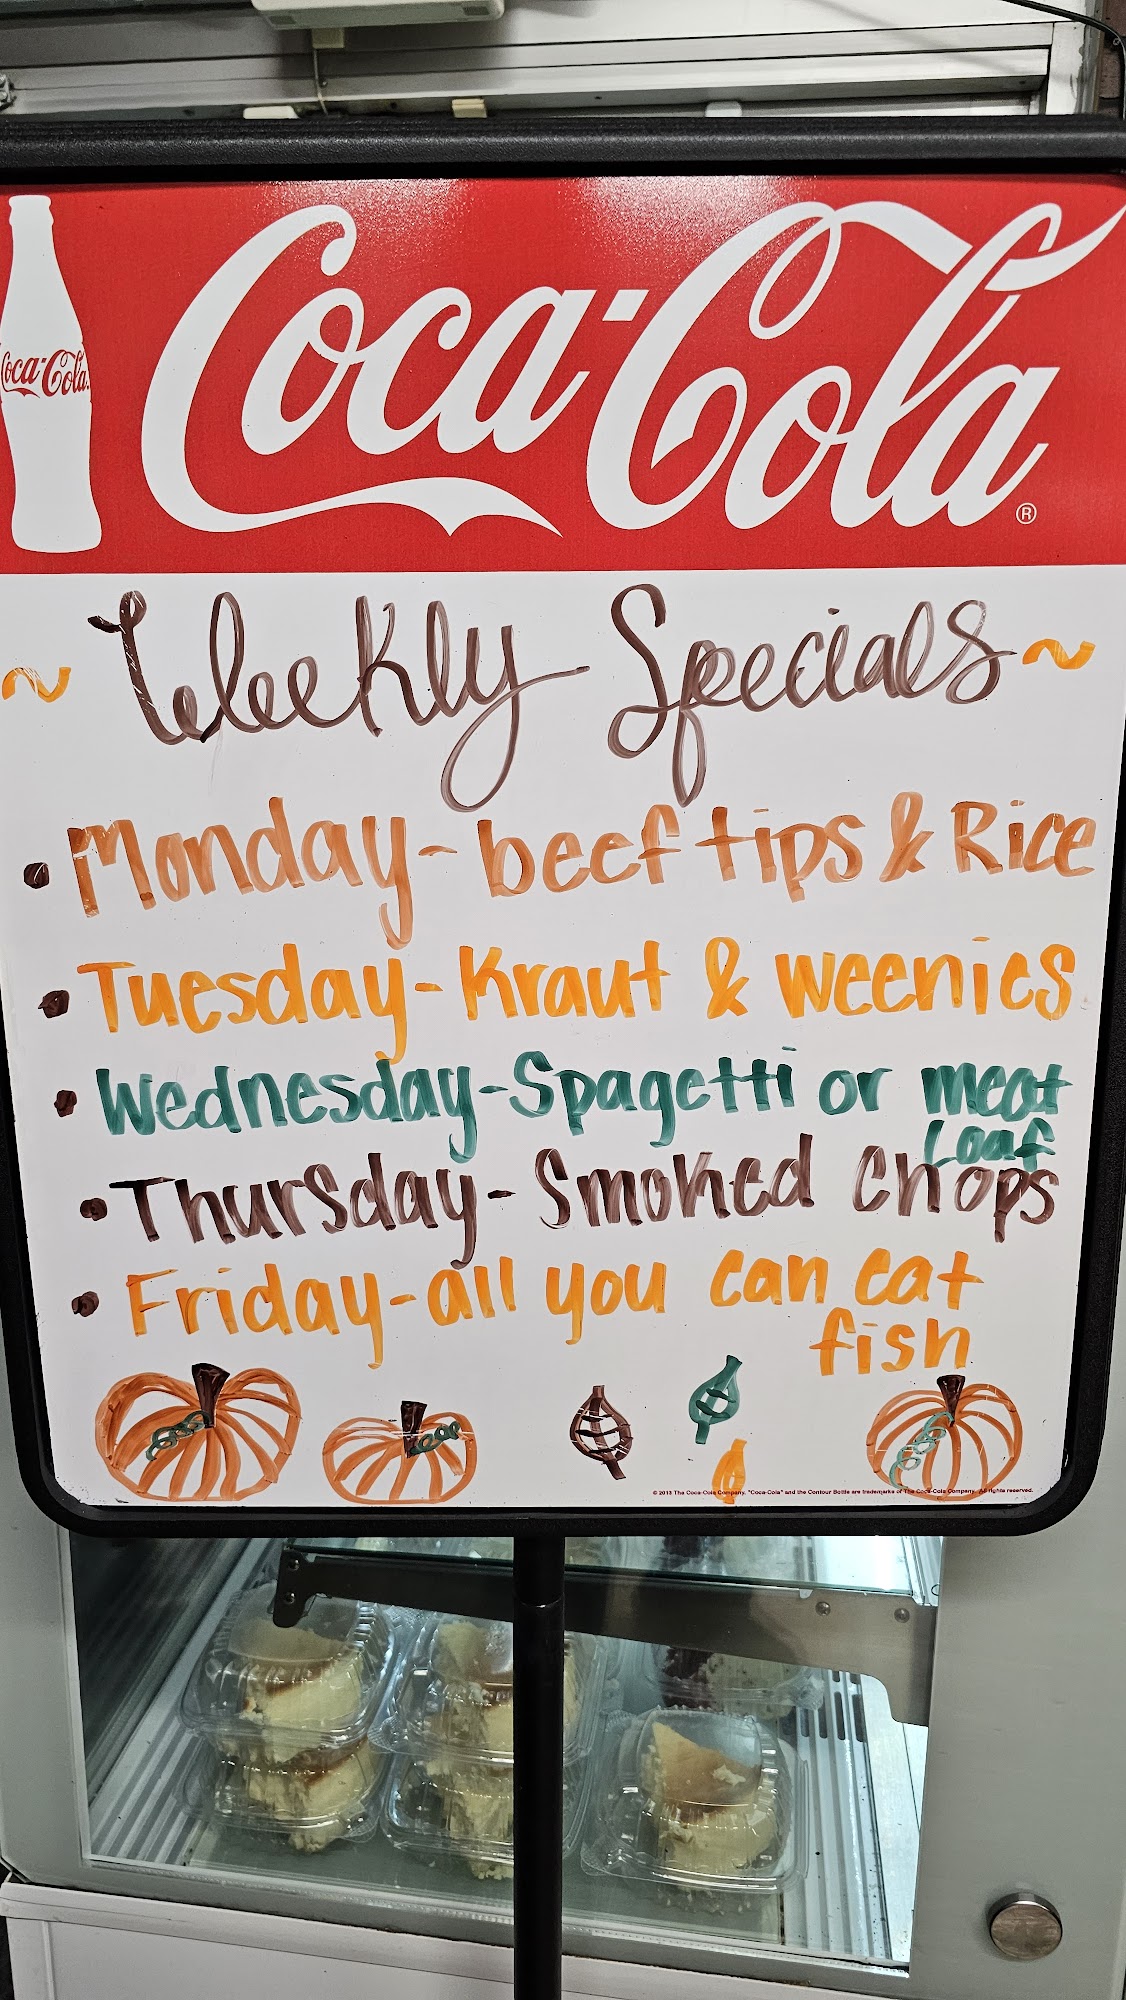 Coca-Cola
Coca-Cola®
~ Weekly Specials ~
• Monday - beef tips & Rice
• Tuesday - Kraut & weenies
• Wednesday - Spagetti or meat
Loaf
• Thursday - Smoked Chops
• Friday - all you can eat
fish
© 2013 The Coca-Cola Company. "Coca-Cola" and the Contour Bottle are trademarks of The Coca-Cola Company. All rights reserved.